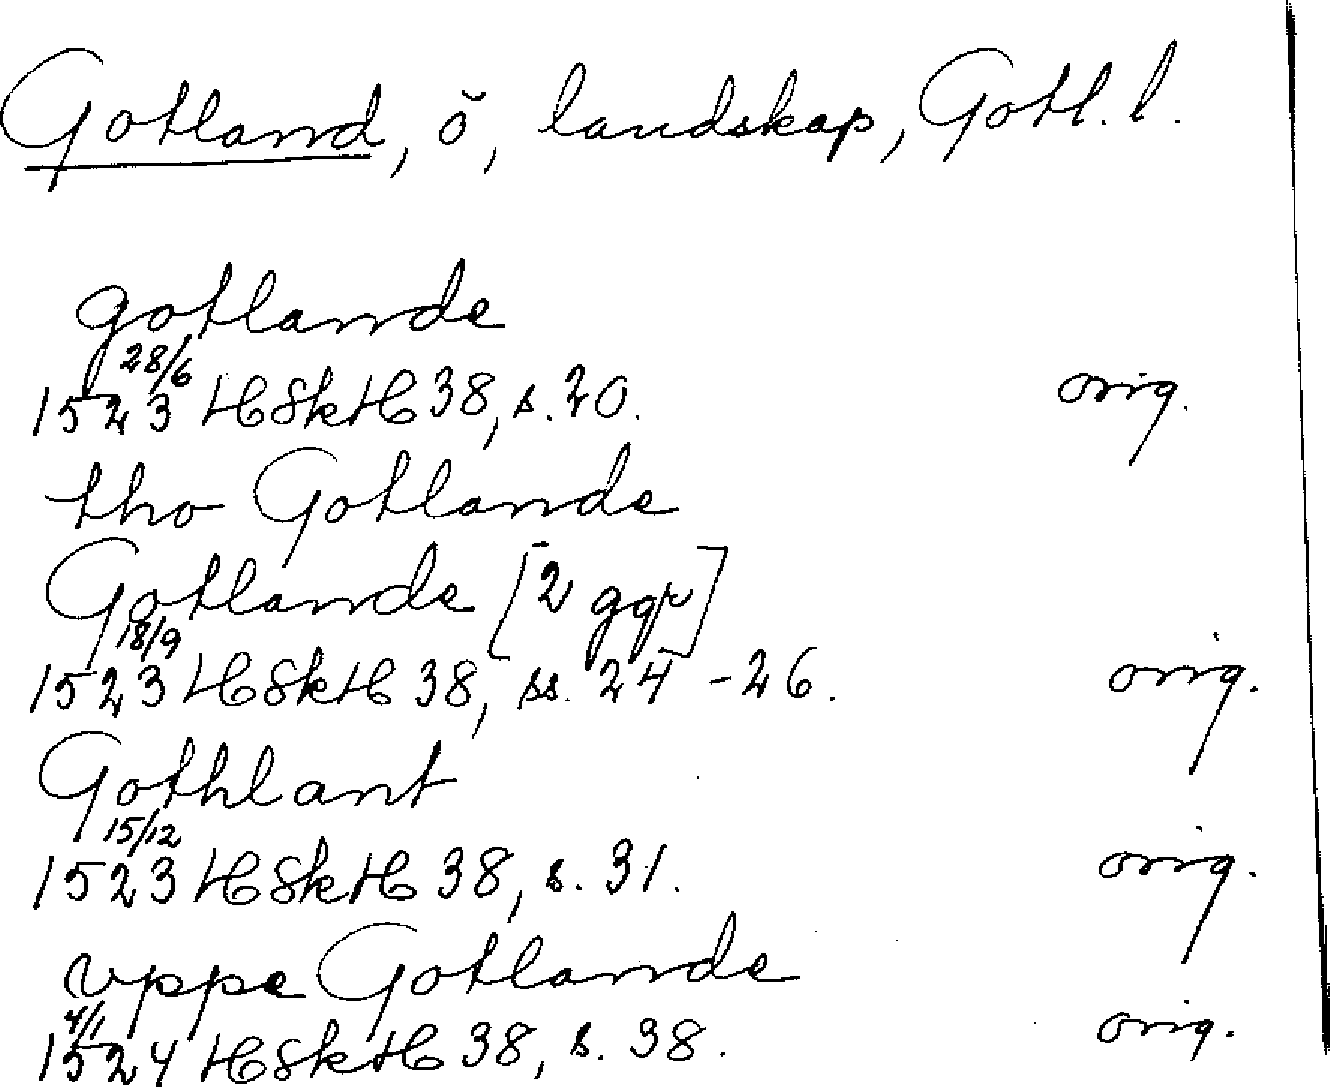 Gotland, ö, landskap, Gotl. l.
gotlande
28/6
1523 HSkH 38, s. 20. orig.
tho Gotlande
Gotlande [2 ggr]
18/9
1523 HSkH 38, ss. 24-26. orig.
Gothlant
15/12
1523 HSkH 38, s. 31. orig.
vppe Gotlande
4/1
1524 HSkH 38, s. 38. orig.